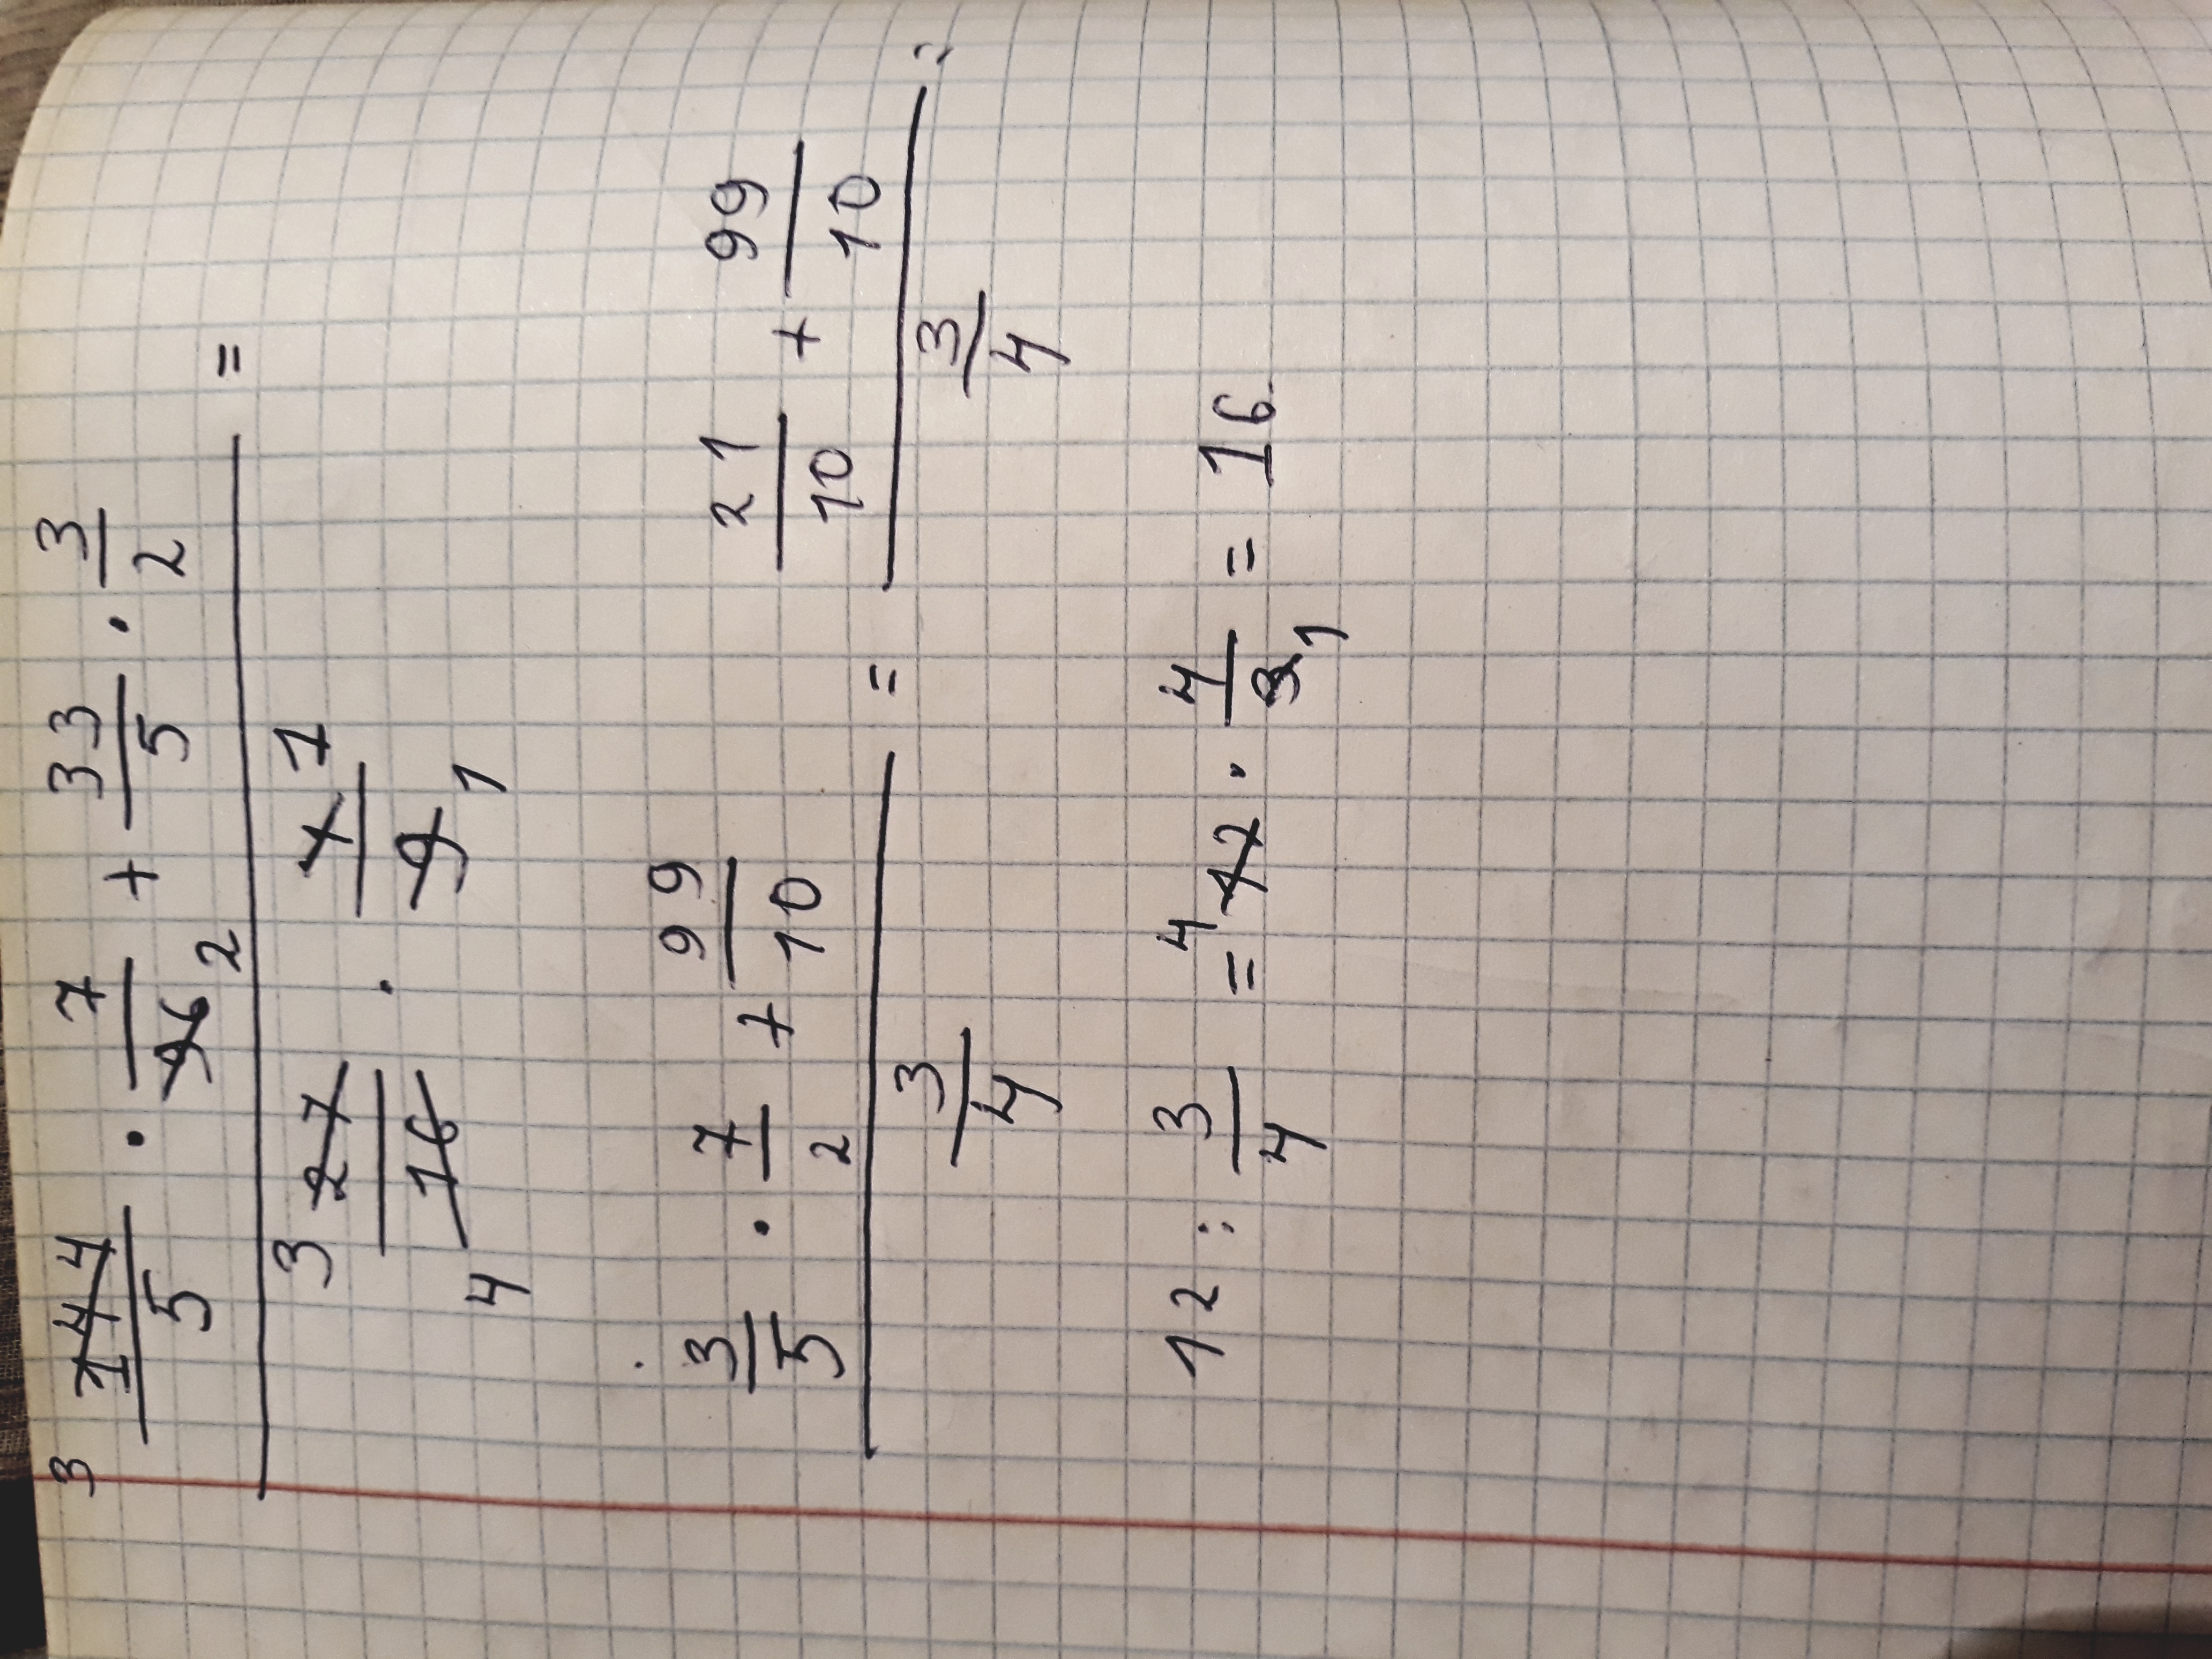 3 144/5 · 7/96 2 + 33/5 · 3/2 =
3 27/16 4 · 4 1/9 1
3/5 · 7/2 + 99/10 = 21/10 + 99/10 =
3/4 3/4
12 : 3/4 = 4 12 · 4/3 1 = 16